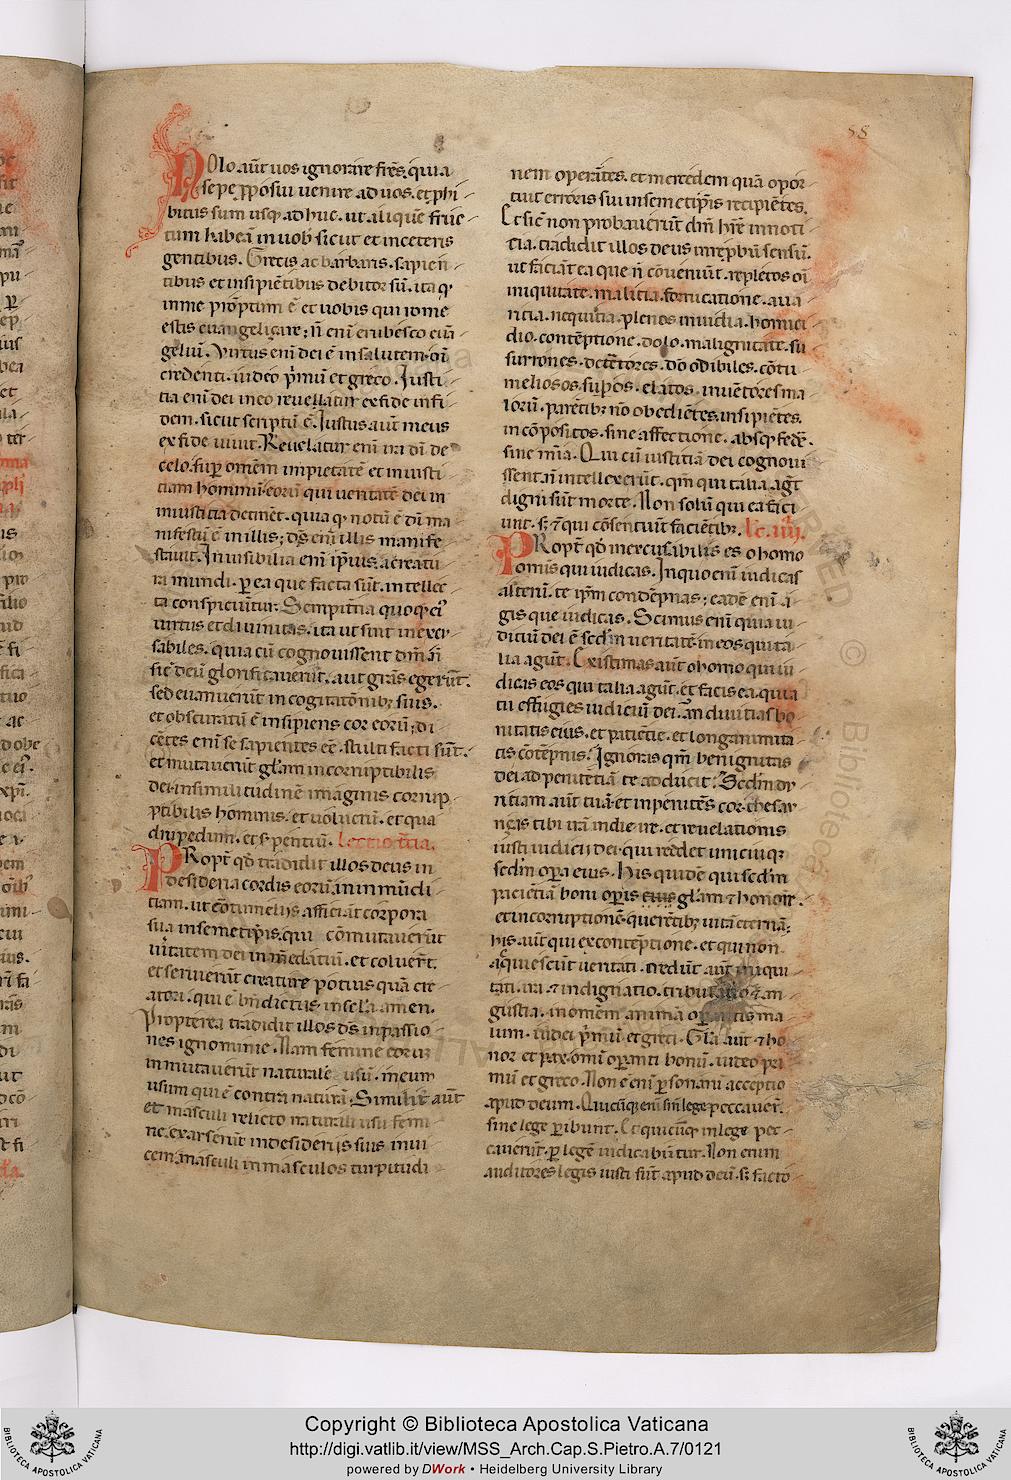 58
NOlo. aūt uos ignorare fr̄es. quia
sepe ꝓposui uenire ad uos. et phi
bitus sum usq; ad huc. ut aliquē fruc
tum habeā in uob̄ sicut et in ceteris
gentibus. Grecis ac barbaris. sapien
tibus et insipiētibus debitor sū. ita q̄
in me prōptum ē et uobis qui rome
estis euangeliçare; n̄ enī erubesco euā
geliū. Virtus enī dei ē in salutem. oī
credenti. iudeo p̄mū et greco. Iusti
tia enī dei in eo reuellatur ex fide in fi
dem. sicut scriptū ē. Iustus aūt meus
ex fide uiuit. Reuelatur enī ira dī de
celo. suꝑ omēm impietatē et iniusti
tiam hominū. eorū qui ueritatē dei in
iniustitia detinēt. quia q̄ notū ē dī ma
nifestū ē in illis; d̄s enī illis manife
stauit. Inuisibilia enī ip̄ius. a creatu
ra mundi. ꝑ ea que facta sūt. intellec
ta conspiciūtur. Sempit̄na quoq; ei'
uirtus et diuinitas. ita ut sint inexcu
sabiles. quia cū cognouissent dm̄. n̄
sic̄ deū glorificauerūt. aut grās egerūt.
sed euanuerūt in cogitatōnib; suis.
et obscuratū ē insipiens cor eorū; di
cētes enī se sapientes eē. stulti facti sūt.
et mutauerūt gl̄am incorruptibilis
dei. in similitudinē imaginis corrup
ptibilis hominis. et uolucrū. et qua
drupedum. et sꝑentiū. Lectio t̄tia.
PRopt̄ qd̄ tradidit illos deus in
desideria cordis eorū. in inmūdi
tiam. ut cōtumelijs afficiāt corpora
sua in semetip̄is. qui cōmutauerūt
ūitatem dei in mēdatiū. et coluer̄t.
et seruierūt creature potius quā cre
atori. qui ē bn̄dictus in sc̄la amen.
Propterea tradidit illos d̄s in passio
nes ignominie. Nam femine eorū
inmutauerūt naturalē usū. in eum
usum qui ē contra naturā. Similit̄ aūt
et masculi relicto naturali usu femi
ne. exarserūt in desiderijs suis inui
cem. masculi in masculos turpitudi
nem operātes. et mercedem quā opor
tuit erroris sui in semetip̄is recipiētes.
Et sic̄ non probauerūt dm̄ hr̄e in noti
tia. tradidit illos deus in rep̄bū sensū.
ut faciāt ea que n̄ cōueniūt. repletos oī
iniquitate. malitia. fornicatione. aua
ritia. nequitia. plenos inuidia. homici
dio. contēptione. dolo. malignitate. su
surrones. detētores. dō odibiles. cōtu
meliosos. suꝑbos. elatos. inuētores ma
lorū. parētib; nō obediētes. insipiētes.
incōpositos. sine affectione. absq; fedē.
sine mīa. Qui cū iustitiā dei cognoui
ssent. n̄ intellexerūt. qm̄ qui talia agūt
digni sūt morte. Non solū qui ea faci
unt. s; & qui cōsentiūt faciētib;. Lc. iiij.
PRopt̄ qd̄ inexcusabilis es o homo
omīs qui iudicas. In quo enī iudicas
alterū. te ip̄m condēpnas; eadē enī a
gis que iudicas. Scimus enī quia iu
diciū dei ē scd̄m ueritatē in eos qui ta
lia agūt. Existimas aūt o homo qui iu
dicas eos qui talia agūt. et facis ea. quia
tu effugies iudiciū dei. an diuitias bo
nitatis eius. et patiētie. et longanimita
tis cōtēpnis? Ignoras qm̄ benignitas
dei ad penitētiā te adducit? Scd̄m du
ritiam aūt tuā. et inpenitēs cor. thesau
riças tibi irā in die ire. et reuelationis
iusti iudicij dei. qui reddet unicuiq;
scd̄m oꝑa eius. His quidē qui scd̄m
paciētiā boni oꝑis eius gl̄am & honorē.
et incorruptionē. querētib; uitā eternā;
his. aūt qui ex contēptione. et qui non
aquiescūt ueritati. credūt aūt iniqui
tati. ira & indignatio. tribulatio & an
gustia. in omēm animā oꝑantis ma
lum. iudei p̄mū et greci. Gl̄a aūt & ho
nor et pax. omī oꝑanti bonū. iudeo pri
mū et greco. Non ē enī ꝑsonarū acceptio
apud deum. Quicūq; enī sin̄ lege peccauer̄.
sine lege ꝑibunt. Et quicūq; in lege pec
cauerūt. ꝑ legē iudicabūtur. Non enim
auditores legis iusti sūt apud deū. s; facto
Copyright © Biblioteca Apostolica Vaticana
http://digi.vatlib.it/view/MSS_Arch.Cap.S.Pietro.A.7/0121
powered by DWork • Heidelberg University Library
BIBLIOTECA APOSTOLICA VATICANA
BIBLIOTECA APOSTOLICA VATICANA